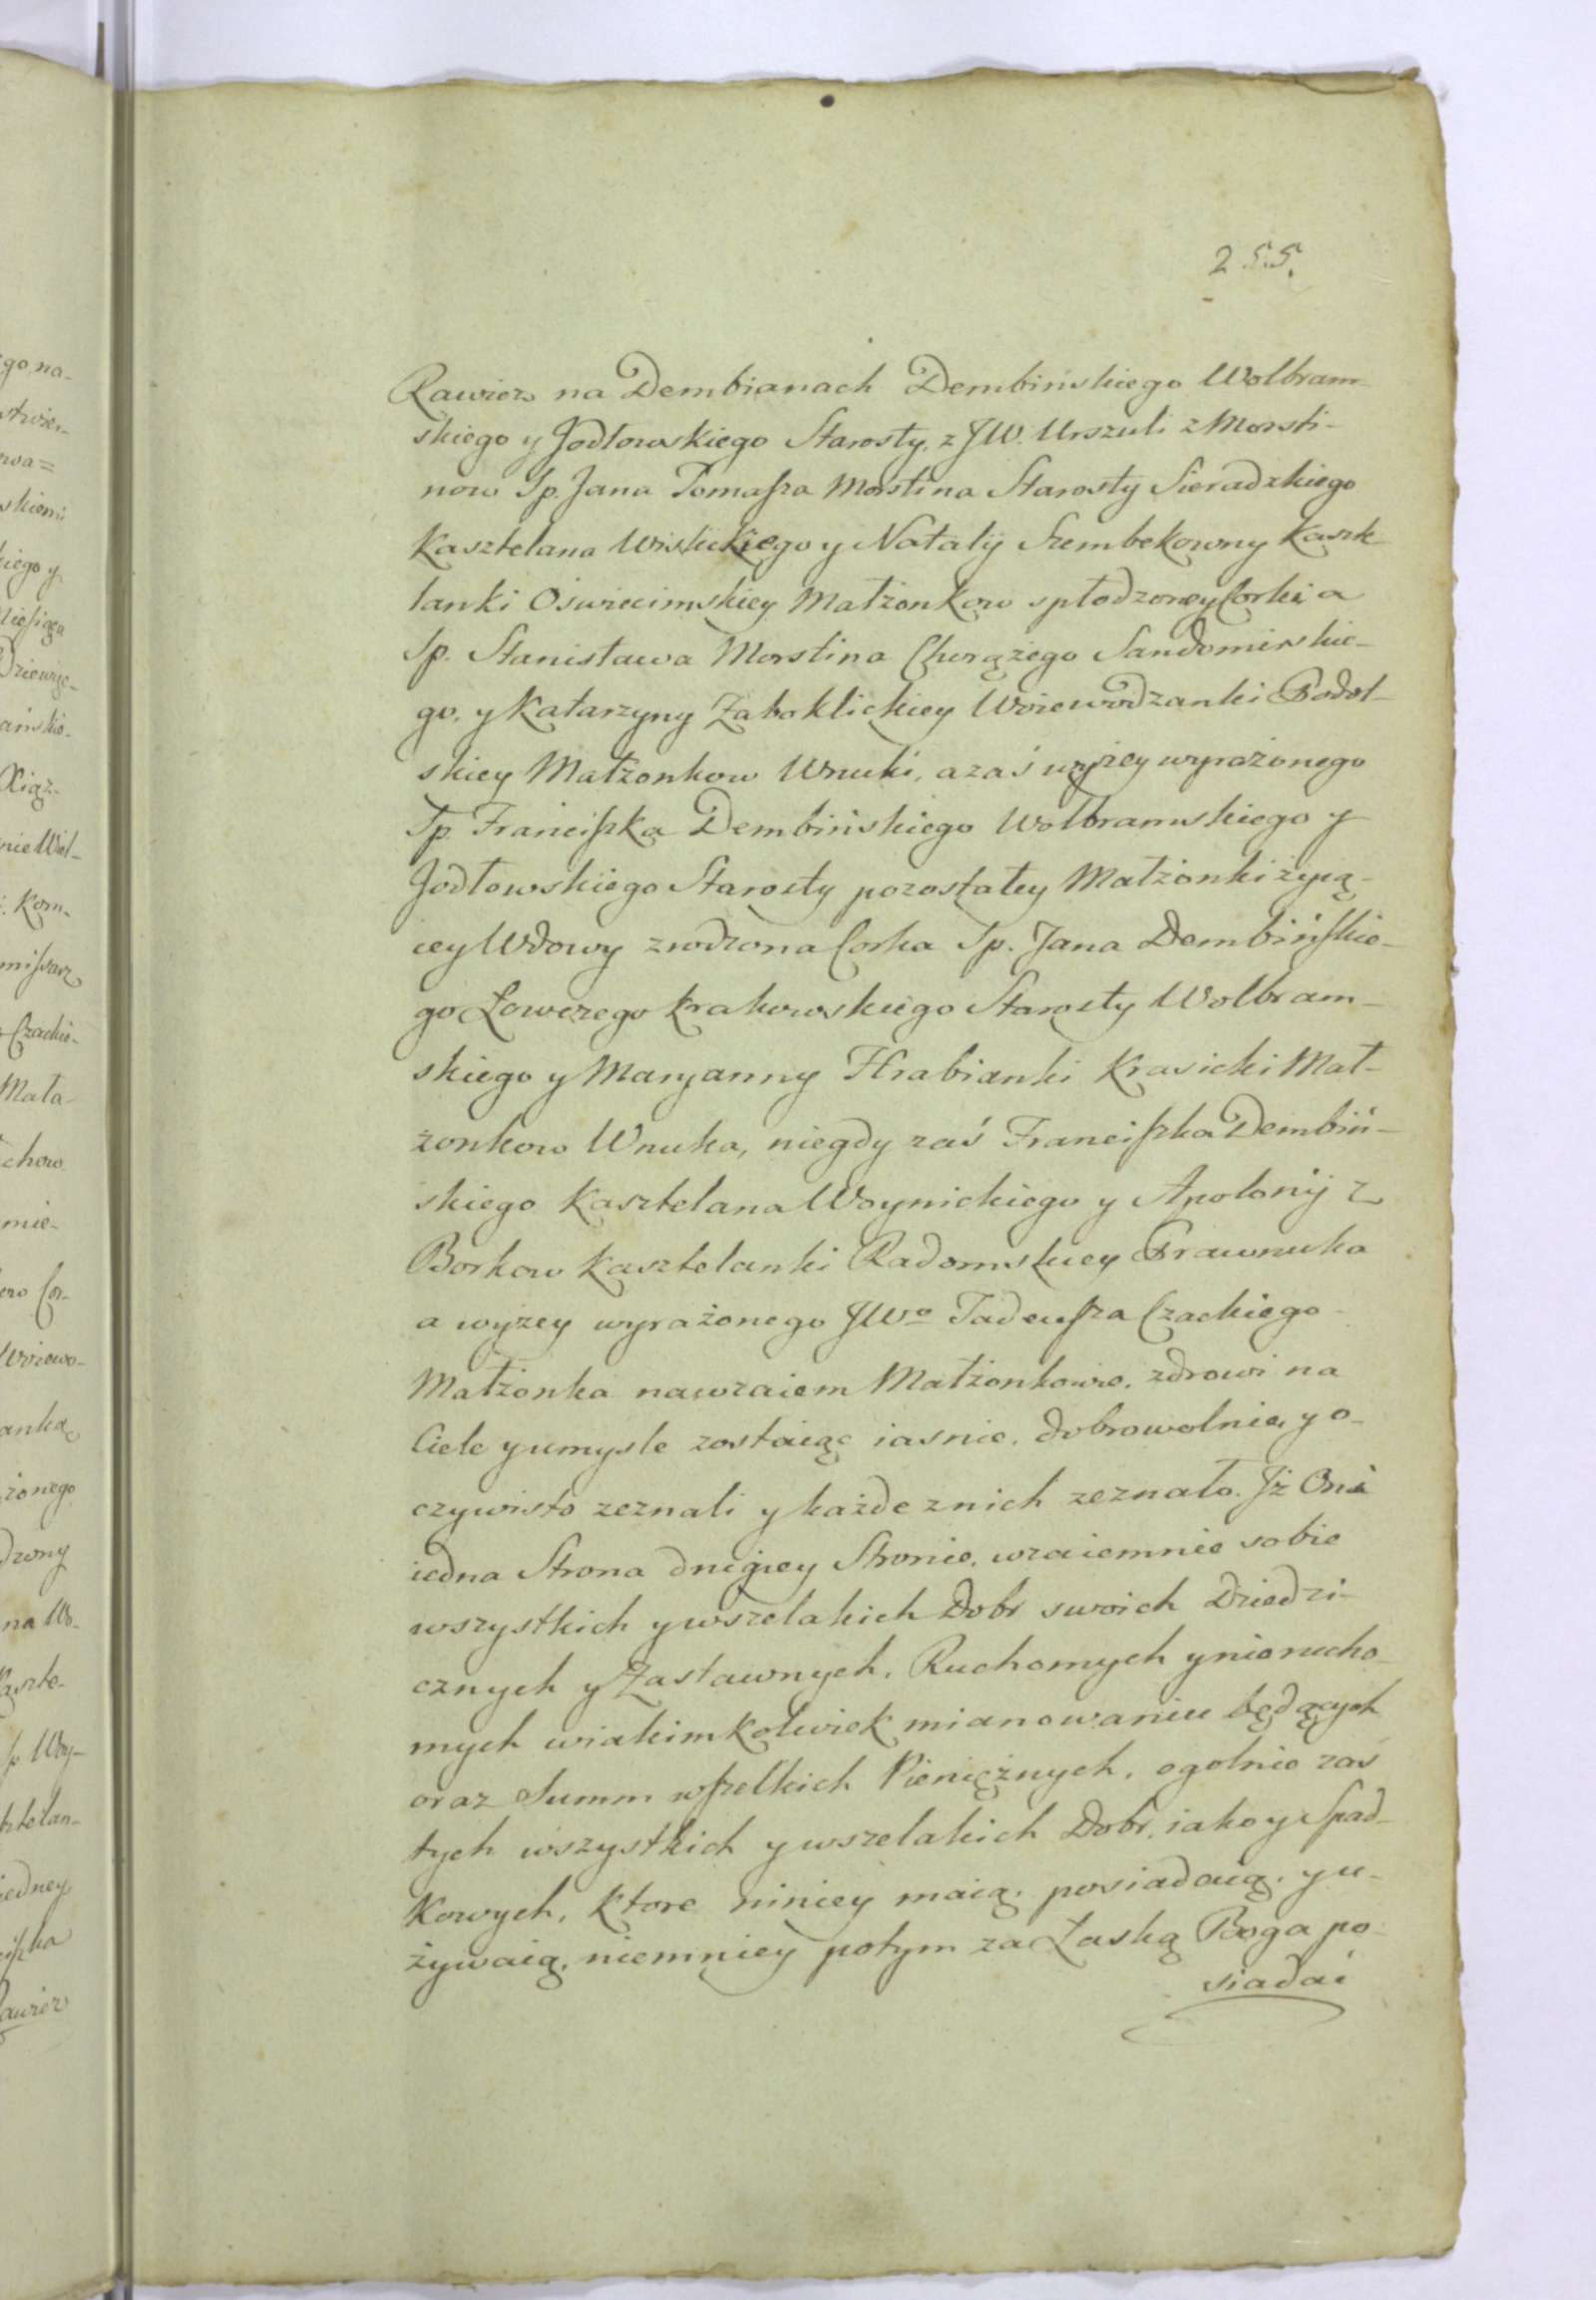 255.
Rawicz na Dembianach Dembińskiego Wolbram-
skiego y Jodłowskiego Starosty, z JW. Urszuli z Morsti-
now Sp. Jana Tomasza Morstina Starosty Sieradzkiego
Kasztelana Wislickiego y Natalij Szembekowny Kaszte-
lanki Oswiecimskiey Małżonkow spłodzoney Corki a
Sp. Stanisława Morstina Chorążego Sandomirskie-
go, y Katarzyny Zaboklickiey Woiewodzanki Podol-
skiey Małżonkow Wnuki, a zaś wyżey wyrażonego
Sp. Franciszka Dembińskiego Wolbramskiego y
Jodłowskiego Starosty pozostałey Małżonki żyją-
cey Wdowy zrodzona Corka Sp. Jana Dembińskie-
go Łowczego Krakowskiego Starosty Wolbram-
skiego y Maryanny Hrabianki Krasicki Mał-
żonkow Wnuka, niegdy zaś Franciszka Dembiń-
skiego Kasztelana Woynickiego y Apolonij z
Borkow Kasztelanki Radomskiey Prawnuka
a wyżey wyrażonego JWo Tadeusza Czackiego
Małżonka nawzaiem Małżonkowie, zdrowi na
Ciele y umysle zostaiąc iasnie, dobrowolnie, y o-
czywisto zeznali y każde z nich zeznało. Iż Oni
iedna Strona drugiey Stronie, wzaiemnie sobie
wszystkich y wszelakich Dobr swoich Dziedzi-
cznych y Zastawnych, Ruchomych y nierucho-
mych w iakimkolwiek mianowaniu będących
oraz Summ wszelkich Pieniężnych, ogolnie zaś
tych wszystkich y wszelakich Dobr, iako y Spad-
kowych, ktore niniey maią, posiadaią, y u-
żywaią, niemniey potym za Łaską Boga po-
siadać